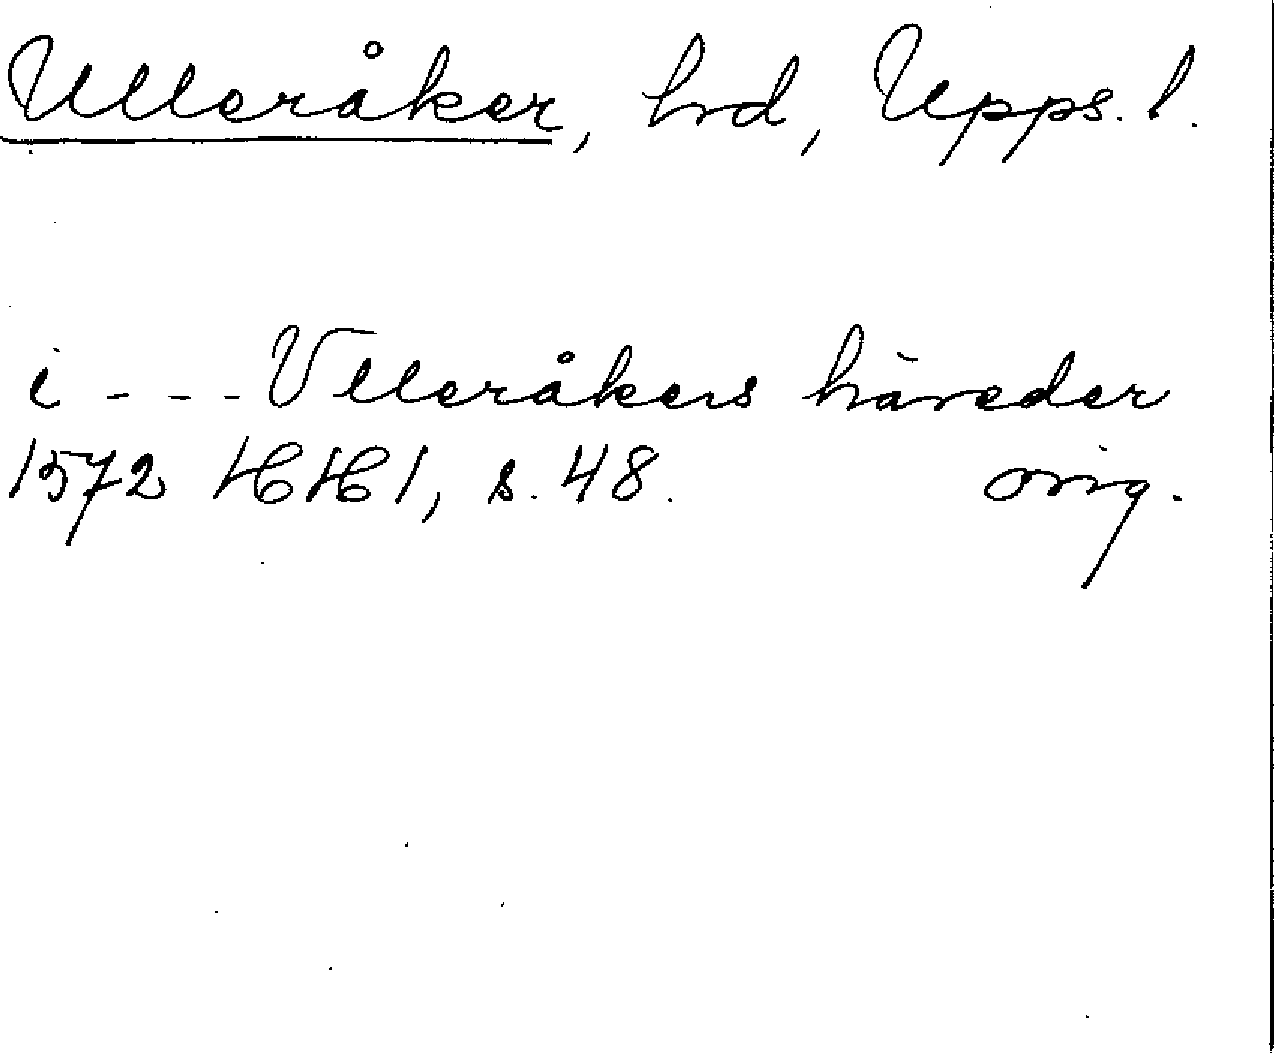 Ulleråker, hd, Upps. l.
i - - - Vlleråkers häreder
1572 HH 1, s. 48. orig.